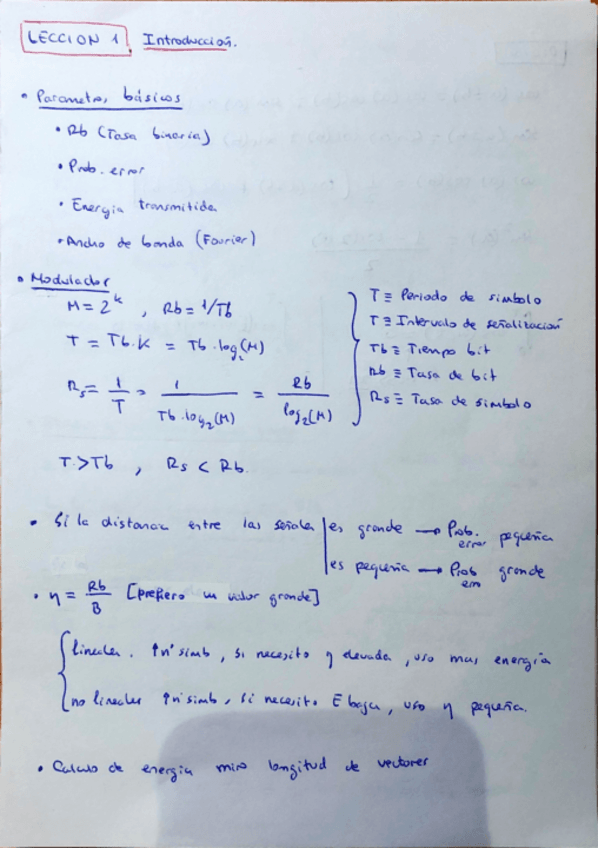 LECCION 1. Introducción.
• Parametros básicos
• Rb (Tasa binaria)
• Prob. error
• Energia transmitida
• Ancho de banda (Fourier)
• Modulador
M = 2^k , Rb = 1/Tb
T = Tb·K = Tb·log₂(M)
Rs = 1/T = 1/(Tb·log₂(M)) = Rb/log₂(M)
T ≡ Periodo de simbolo
T ≡ Intervalo de señalización
Tb ≡ Tiempo bit
Rb ≡ Tasa de bit
Rs ≡ Tasa de simbolo
T > Tb , Rs < Rb.
• Si la distancia entre las señales | es grande → Prob. error pequeña
| es pequeña → Prob error grande
• η = Rb/B [prefiero un valor grande]
lineales. ↑nº simb, si necesito η elevada, uso mas energía
no lineales ↑nº simb, si necesito E baja, uso η pequeña.
• Calculo de energia miro longitud de vectores